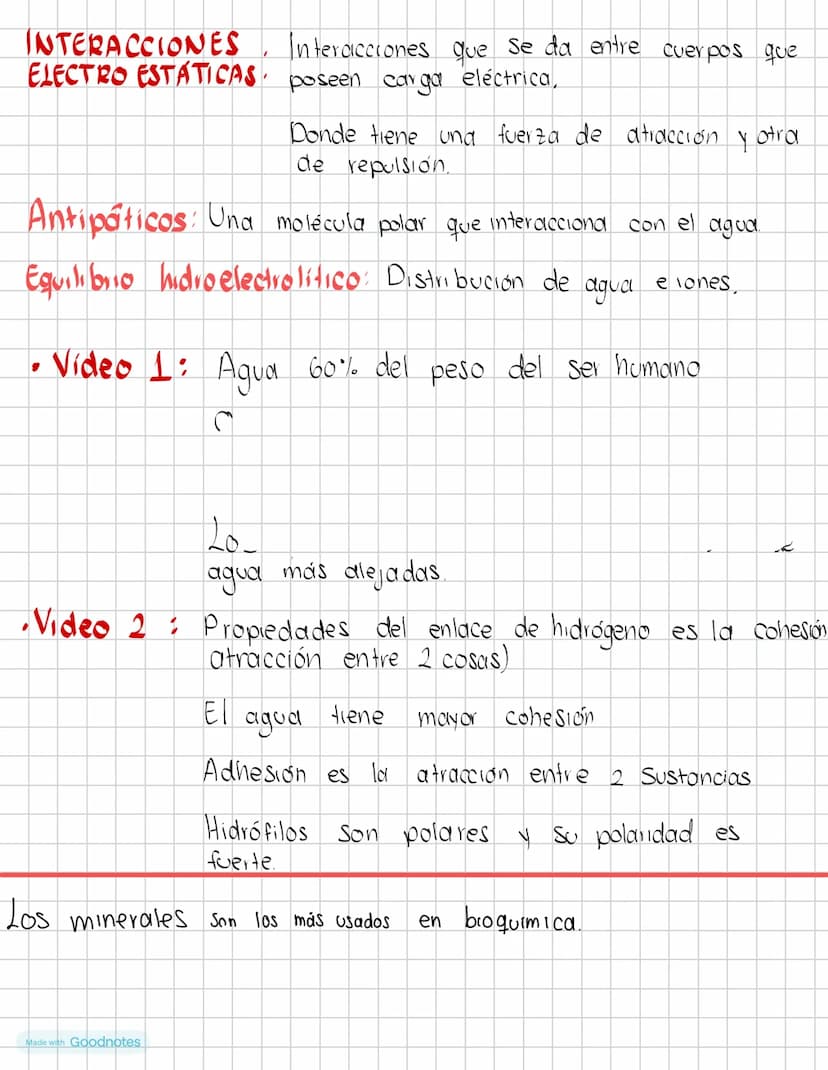 INTERACCIONES . Interacciones que se da entre cuerpos que
ELECTRO ESTÁTICAS. poseen carga eléctrica.
Donde tiene una fuerza de atracción y otra
de repulsión.
Antipáticos: Una molécula polar que interacciona con el agua.
Equilibrio hidroelectrolítico: Distribución de agua e iones.
• Vídeo 1: Agua 60% del peso del ser humano
agua más alejadas.
• Video 2 : Propiedades del enlace de hidrógeno es la cohesión
atracción entre 2 cosas)
El agua tiene mayor cohesión
Adhesión es la atracción entre 2 sustancias
Hidrófilos son polares y su polaridad es
fuerte.
Los minerales son los más usados en bioquimica.
Made with Goodnotes